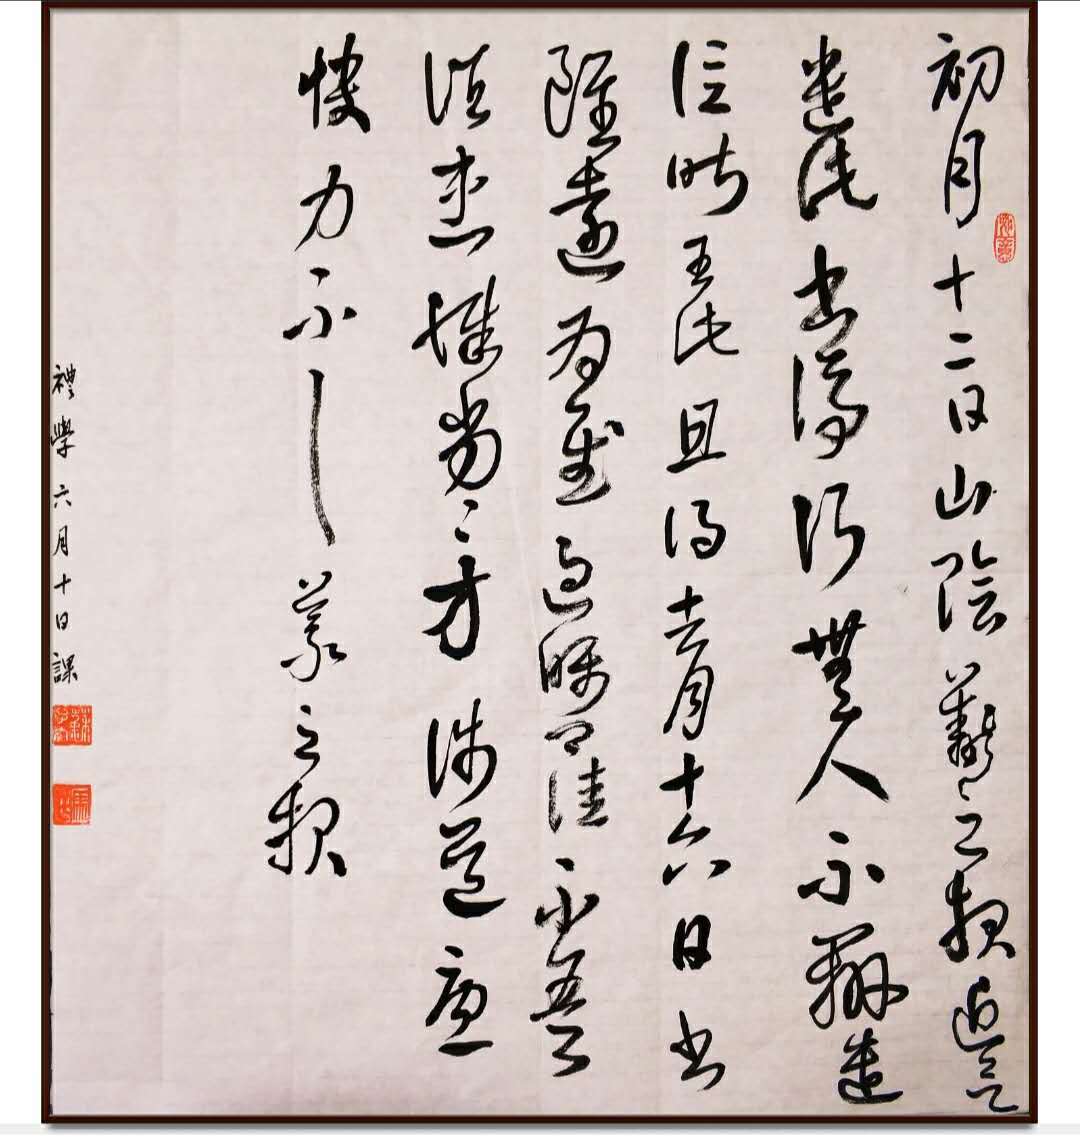 初月十二日山陰羲之報近欲
遣此書停行無人不辦遣
信昨至此且得去月十六日書
雖遠為慰過囑卿佳不吾
諸患殊劣〻方涉道憂
悴力不具羲之報
禮學六月十日課